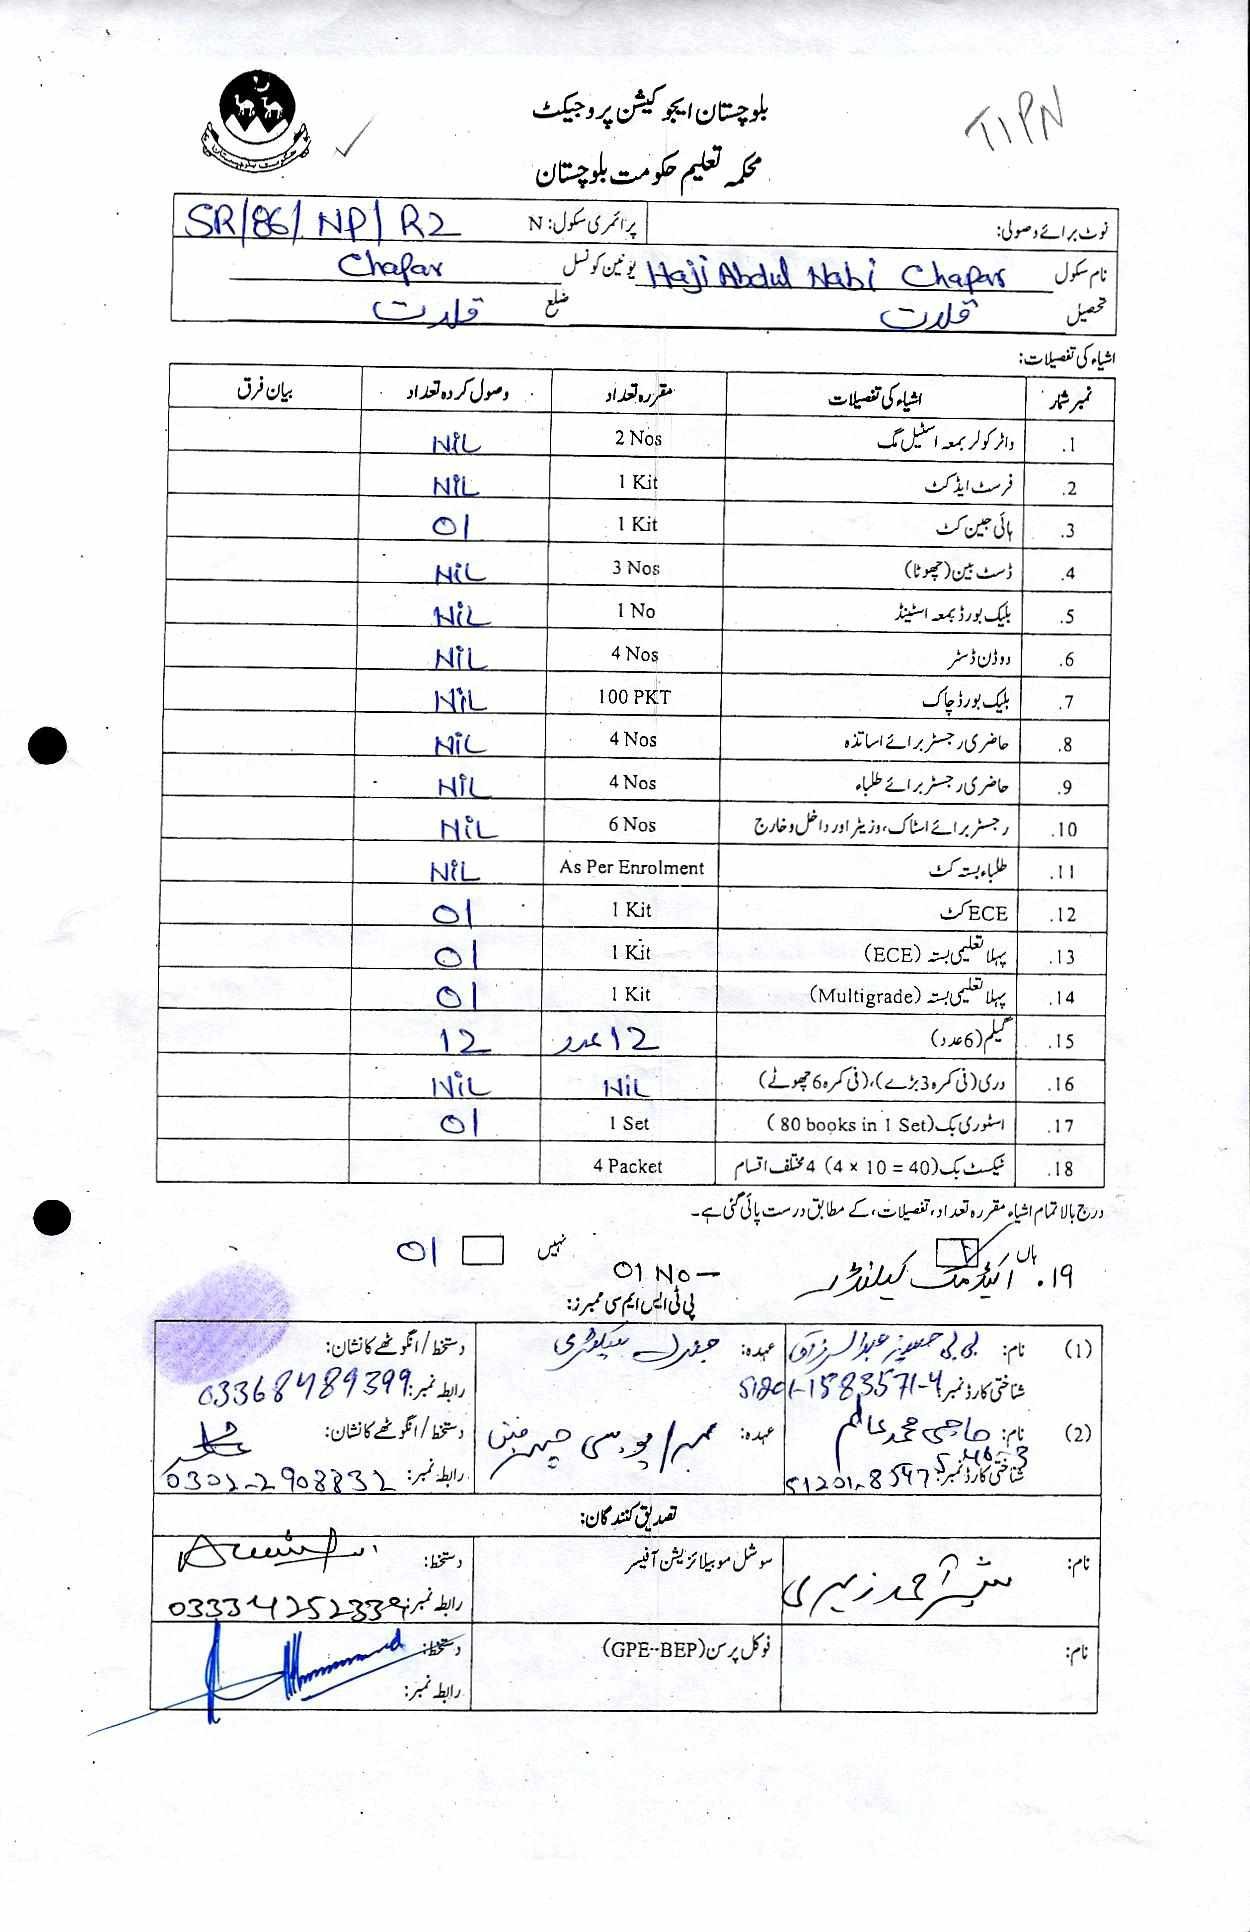 بلوچستان ایجوکیشن پروجیکٹ
TIPN
محکمہ تعلیم حکومت بلوچستان
نوٹ برائے وصولی: پرائمری سکول: N SR/86/NP/R2
نام سکول Haji Abdul Nabi Chapar یونین کونسل Chapar
تحصیل قلات ضلع قلات
اشیاء کی تفصیلات:
نمبر شمار اشیاء کی تفصیلات مقررہ تعداد وصول کردہ تعداد بیان فرق
1. واٹر کولر بمعہ اسٹیل مگ 2 Nos NiL
2. فرسٹ ایڈ کٹ 1 Kit NiL
3. ہائی جین کٹ 1 Kit 01
4. ڈسٹ بین (چھوٹا) 3 Nos NiL
5. بلیک بورڈ بمعہ اسٹینڈ 1 No NiL
6. ووڈن ڈسٹر 4 Nos NiL
7. بلیک بورڈ چاک 100 PKT NiL
8. حاضری رجسٹر برائے اساتذہ 4 Nos NiL
9. حاضری رجسٹر برائے طلباء 4 Nos NiL
10. رجسٹر برائے اسٹاک، وزیٹر اور داخل و خارج 6 Nos NiL
11. طلباء بستہ کٹ As Per Enrolment NiL
12. ECE کٹ 1 Kit 01
13. پہلا تعلیمی بستہ (ECE) 1 Kit 01
14. پہلا تعلیمی بستہ (Multigrade) 1 Kit 01
15. گیلم (6 عدد) 12 عدد 12
16. دری (فی کمرہ 3 بڑے)، (فی کمرہ 6 چھوٹے) NiL NiL
17. اسٹوری بک (80 books in 1 Set) 1 Set 01
18. ٹیکسٹ بک (4 × 10 = 40) 4 مختلف اقسام 4 Packet
درج بالا تمام اشیاء مقررہ تعداد، تفصیلات، کے مطابق درست پائی گئی ہے۔
ہاں نہیں
19. اکیڈمک کیلنڈر 01 No - 01
پی ٹی ایس ایم سی ممبرز:
(1) نام: بی بی عبدالرزاق عہدہ: جنرل سیکٹری دستخط/انگوٹھے کا نشان:
شناختی کارڈ نمبر: 51201-1583571-4 رابطہ نمبر: 03368489399
(2) نام: حاجی محمد عالم عہدہ: ممبر/ دستخط/انگوٹھے کا نشان:
شناختی کارڈ نمبر: رابطہ نمبر: 0302-2908832
تصدیق کنندگان:
نام: احمد زہری سوشل موبیلائزیشن آفیسر دستخط:
رابطہ نمبر: 03334252339
نام: فوکل پرسن (GPE-BEP) دستخط:
رابطہ نمبر: